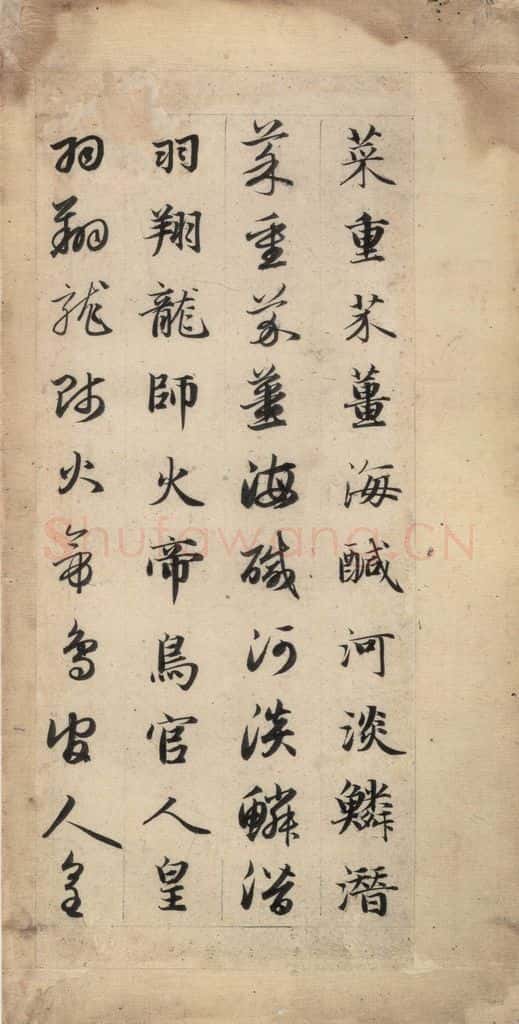 菜重芥薑海醎河淡鱗潛
菜重芥薑海醎河淡鱗潛
羽翔龍師火帝鳥官人皇
羽翔龍師火帝鳥官人皇
Shufawang.CN